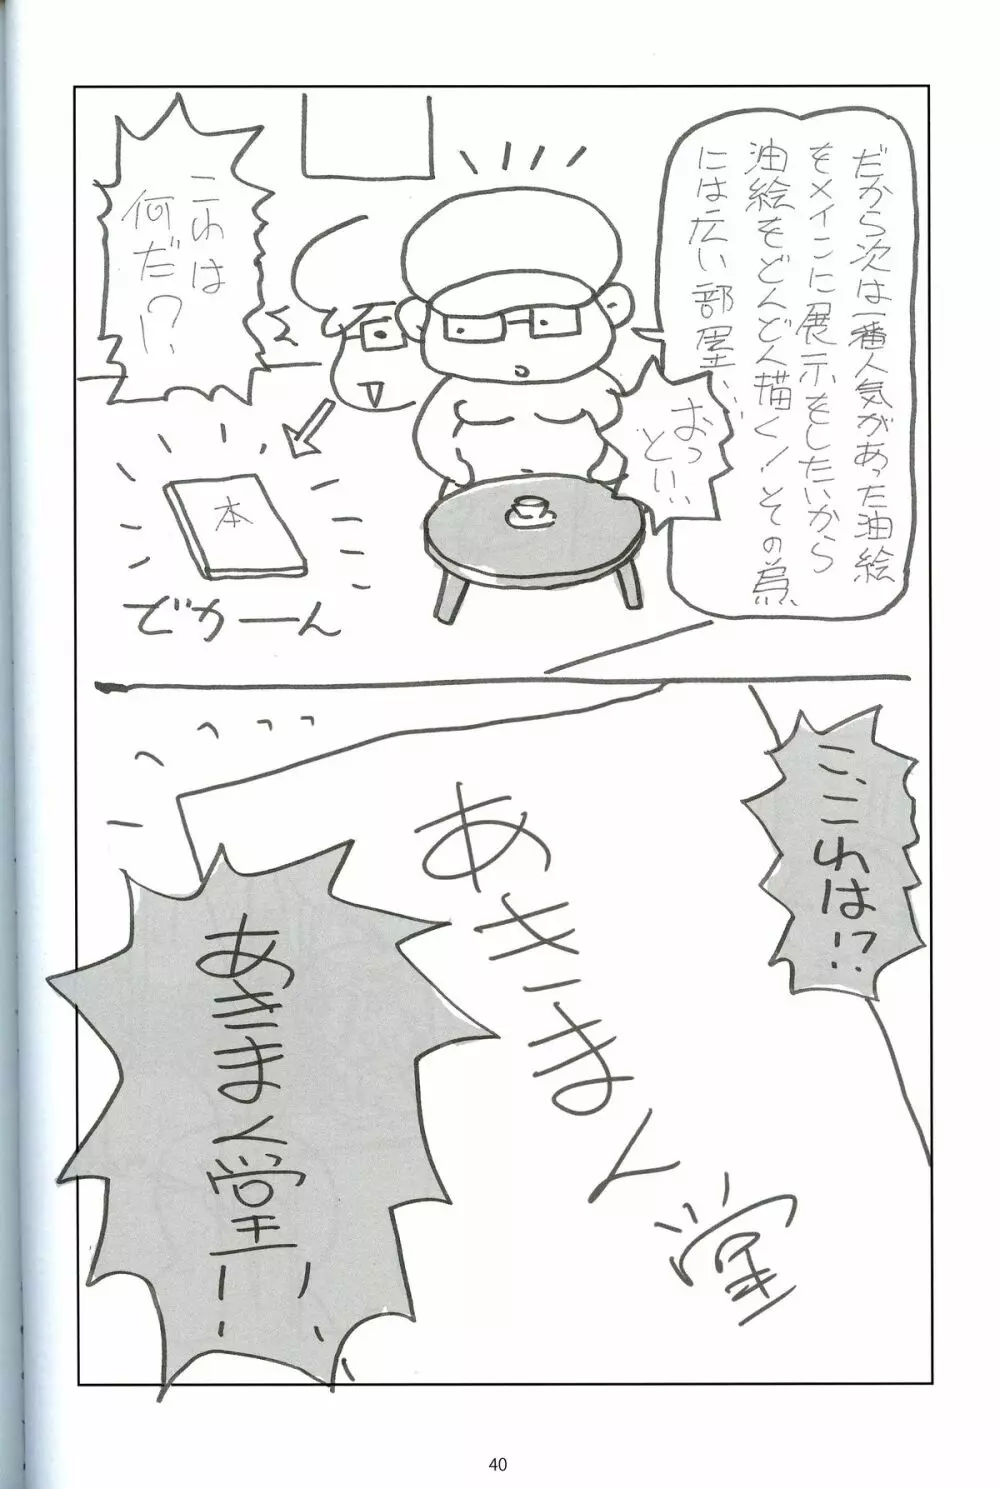 だから次は一番人気があった油絵
をメインに展示をしたいから
油絵をどんどん描く！その為
には広い部屋、、
おっ
とい、
これは
何だ!?
本
でかーん
こ、これは!?
あきまん
堂
あきまん堂!!
40